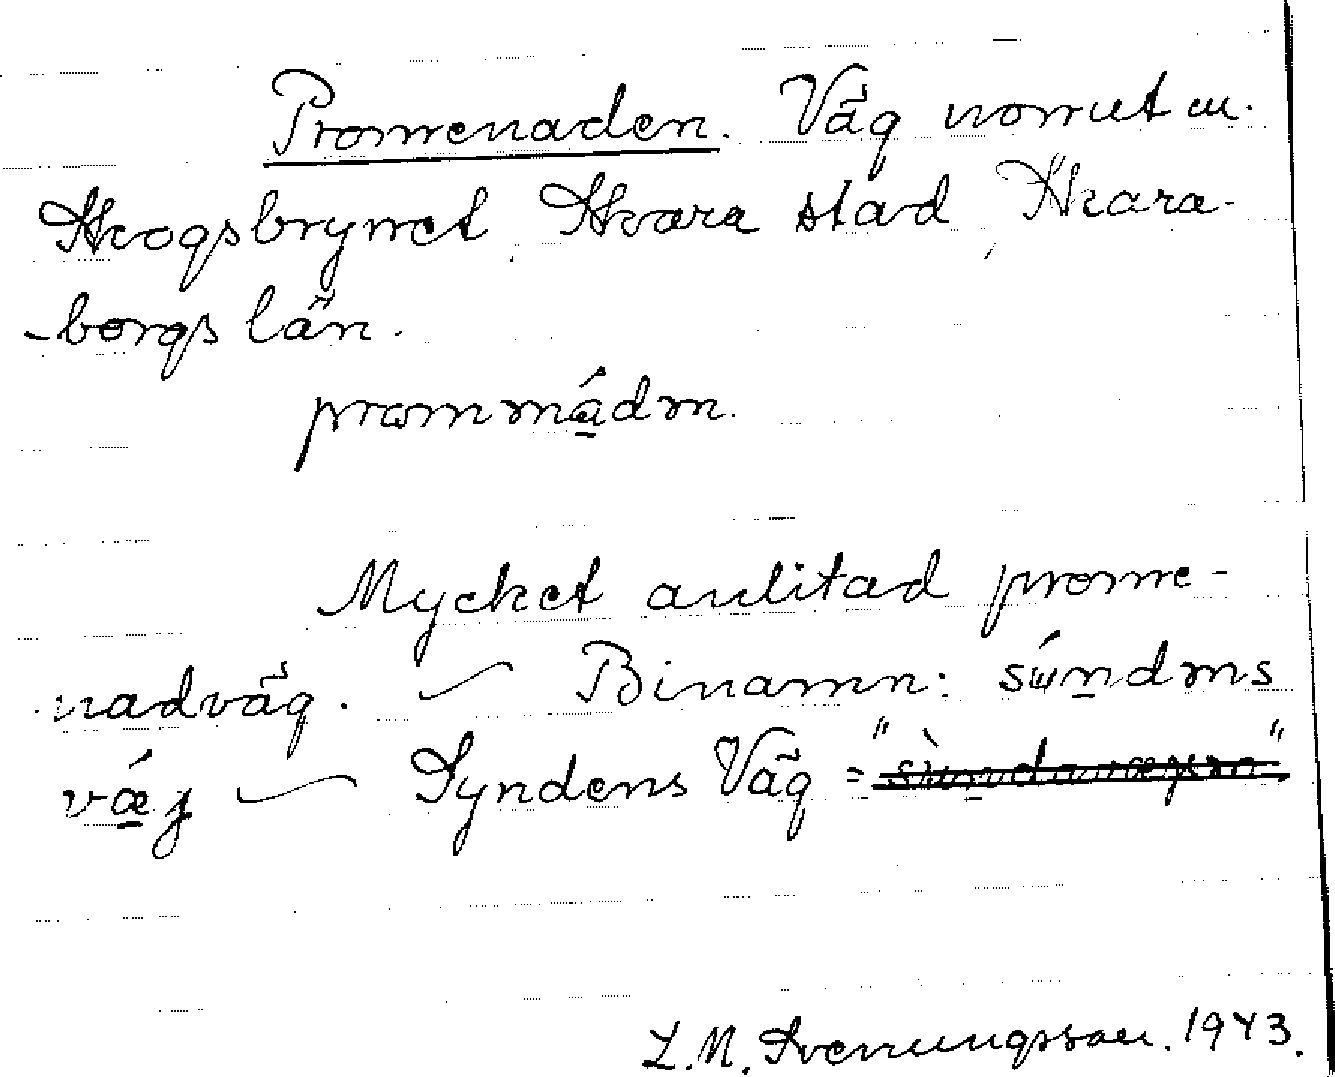 Promenaden. Väg norrut ur
Skogsbrynet, Skara stad, Skara-
-borgs län.
prommádṇ.
Mycket anlitad prome-
nadväg. — Binamn: sýndṇs
vǽj — Syndens Väg =
L.M. Svenungsson. 1943.